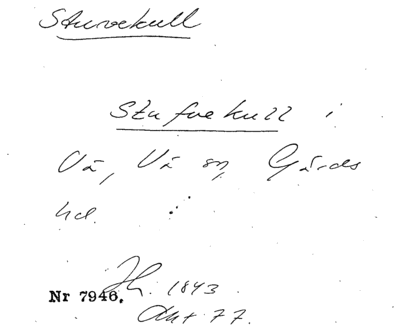 Sturvekull
Stufvekull i
Vä, Vä sn, Gärds
hd.
Nr 7946. 1843
Akt 77.